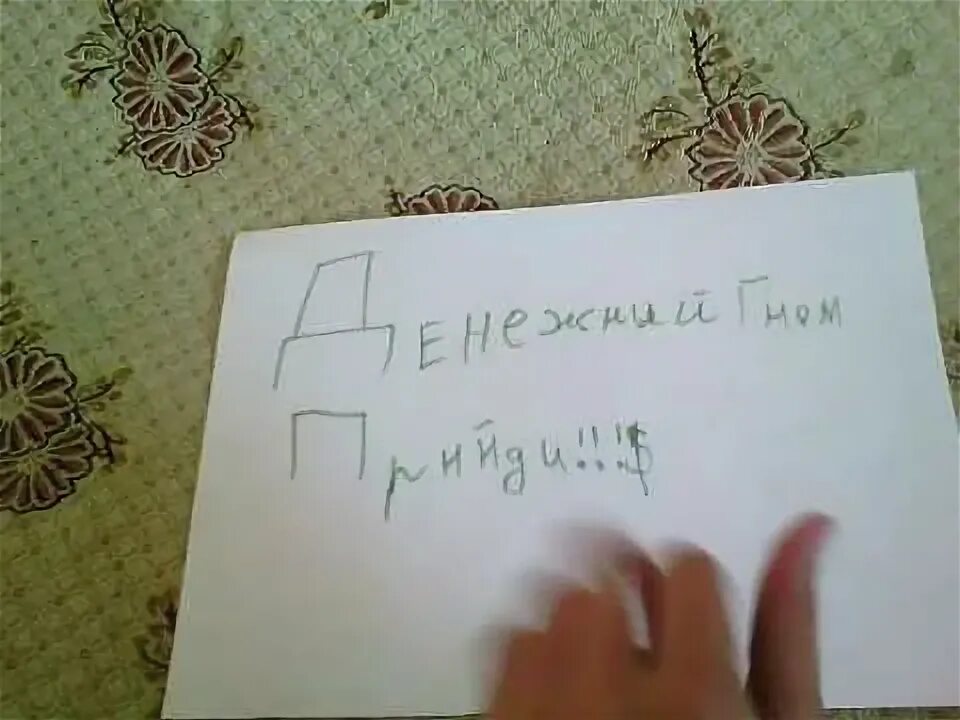 Денежный Гном
Прийди!!!$